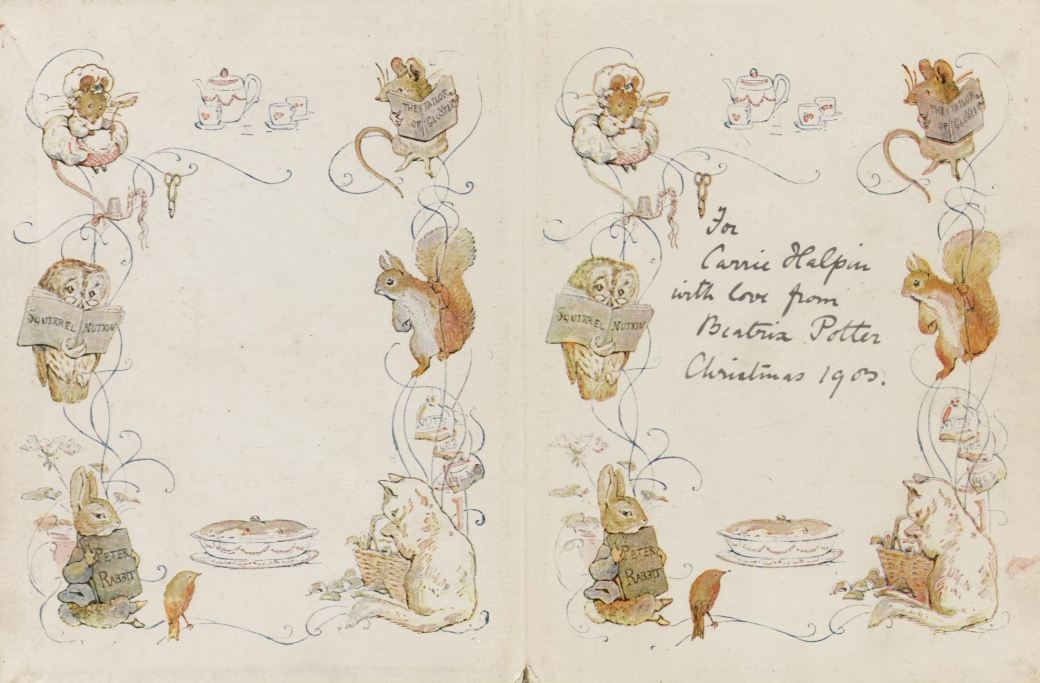 THE TAILOR
OF GLOSTER
SQUIRREL NUTKIN
NUTS
PETER
RABBIT
THE TAILOR
OF GLOSTER
For
Carrie Halpin
with love from
Beatrix Potter
Christmas 1903.
SQUIRREL NUTKIN
NUTS
PETER
RABBIT